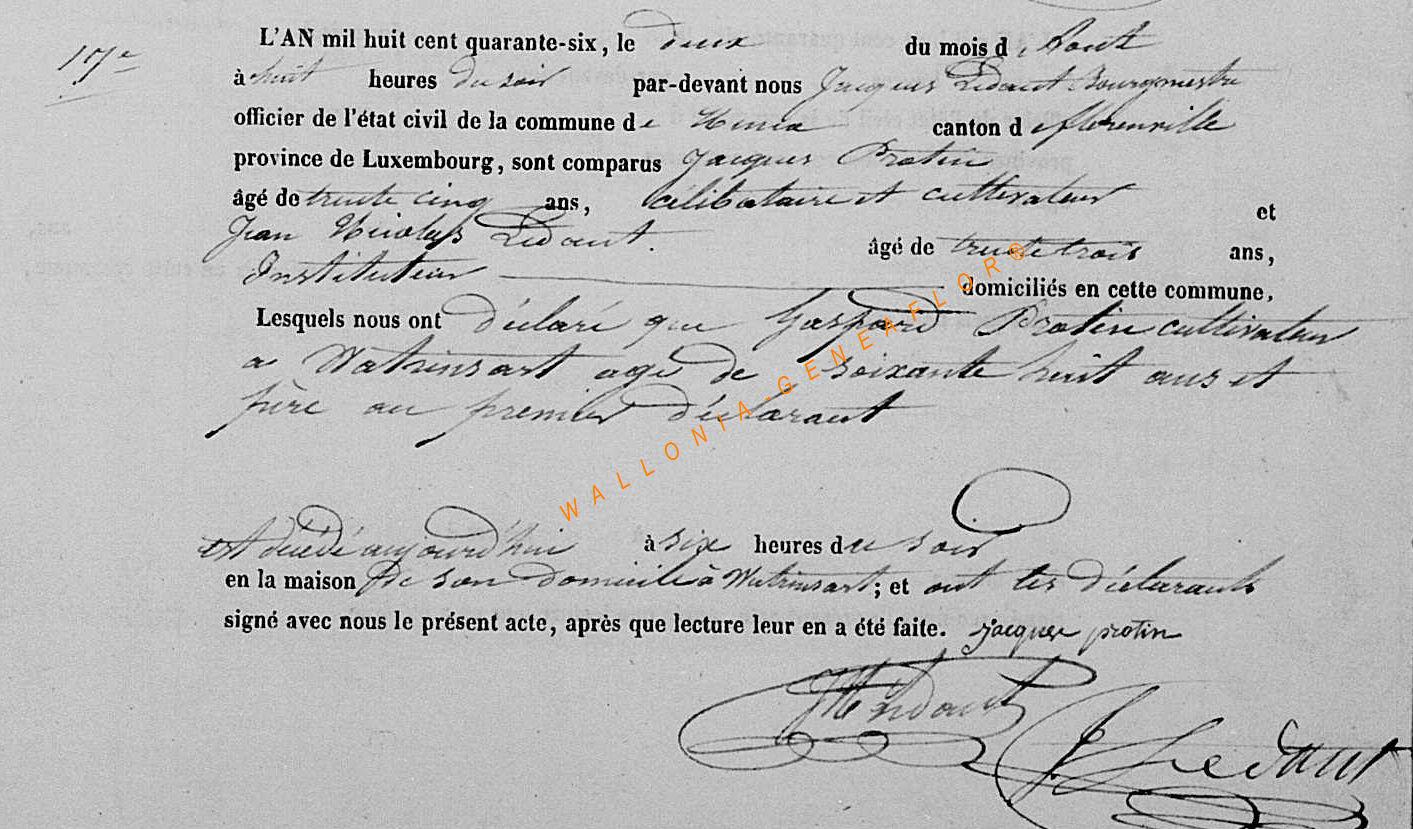 17e
L'AN mil huit cent quarante-six, le deux du mois d'Aout
à huit heures du soir par-devant nous Jacques Ledant Bourgmestre
officier de l'état civil de la commune de canton de florenville
province de Luxembourg, sont comparus Jacques Protin
âgé de trente cinq ans, célibataire et cultivateur et
Jean Nicolas Ledant. âgé de trente trois ans,
Instituteur domiciliés en cette commune,
Lesquels nous ont déclaré que Gaspard Protin cultivateur
a Watrinsart agé de soixante huit ans et
père au premier déclarant
est décédé aujourd'hui à six heures du soir
en la maison de son domicile à Watrinsart; et ont les déclarants
signé avec nous le présent acte, après que lecture leur en a été faite. jacques protin
Ledant
J Ledant
WALLONIA-GENEAFLOR®